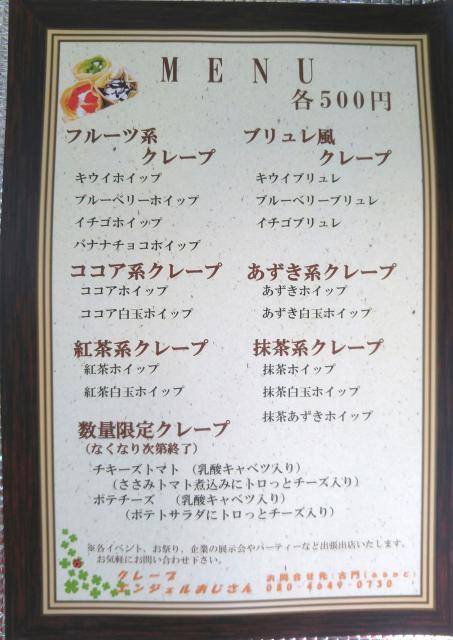 MENU
各500円
フルーツ系
クレープ
キウイホイップ
ブルーベリーホイップ
イチゴホイップ
バナナチョコホイップ
ブリュレ風
クレープ
キウイブリュレ
ブルーベリーブリュレ
イチゴブリュレ
ココア系クレープ
ココアホイップ
ココア白玉ホイップ
あずき系クレープ
あずきホイップ
あずき白玉ホイップ
紅茶系クレープ
紅茶ホイップ
紅茶白玉ホイップ
抹茶系クレープ
抹茶ホイップ
抹茶白玉ホイップ
抹茶あずきホイップ
数量限定クレープ
（なくなり次第終了）
チキーズトマト （乳酸キャベツ入り）
（ささみトマト煮込みにトロっとチーズ入り）
ポテチーズ （乳酸キャベツ入り）
（ポテトサラダにトロっとチーズ入り）
※各イベント、お祭り、企業の展示会やパーティーなど出張出店いたします。
お気軽にお問い合わせ下さい。
クレープ
エンジェルおじさん
お問合せ先:古門
080-4649-0730